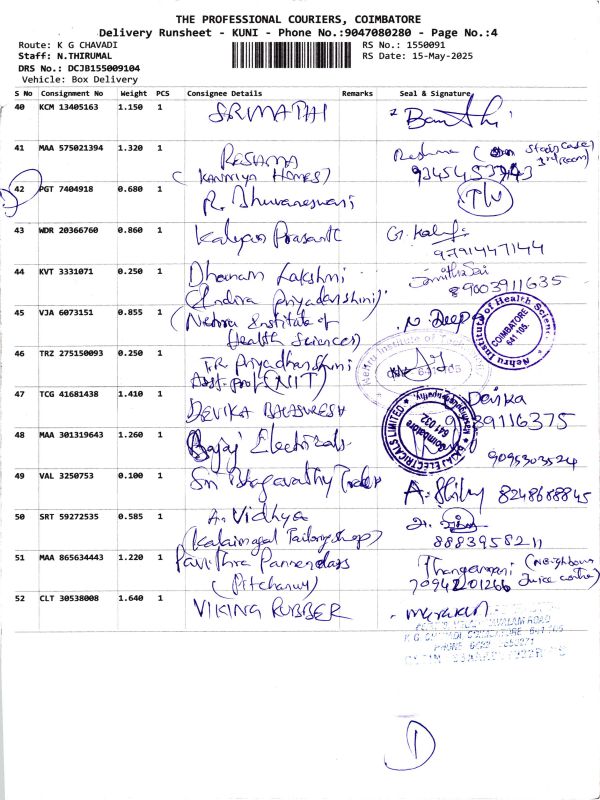 THE PROFESSIONAL COURIERS, COIMBATORE
Delivery Runsheet - KUNI - Phone No.:9047080280 - Page No.:4
Route: K G CHAVADI
RS No.: 1550091
Staff: N.THIRUMAL
RS Date: 15-May-2025
DRS No.: DCJB155009104
Vehicle: Box Delivery
S No Consignment No Weight PCS Consignee Details Remarks Seal & Signature
40 KCM 13405163 1.150 1 SRIMATHI
41 MAA 575021394 1.320 1 RESHMA Reshma
(KANMIYA HOMES)
42 PGT 7404918 0.680 1 R. Bhuvaneswari
43 WDR 20366760 0.860 1 Kalyan Prasanth
9791447144
44 KVT 3331071 0.250 1 Dhanam Lakshmi
89003911635
(Indira Priyadarshini)
45 VJA 6073151 0.855 1 (Nehru Institute of N. Deepa
Health Sciences)
Nehru Institute of Health Sciences
COIMBATORE
641 105.
46 TRZ 275150093 0.250 1 T.R Priyadharshini
Asst. prof (NIT)
Nehru Institute of Technology
641 105
47 TCG 41681438 1.410 1 DEVIKA BALASURESH Devika
89116375
48 MAA 301319643 1.260 1 Bajaj Electricals
BAJAJ ELECTRICALS LIMITED
Coimbatore
641 032
9095303524
49 VAL 3250753 0.100 1 Sri Bhagavathy Traders A. Shiby 8248688845
50 SRT 59272535 0.585 1 A. Vidhya
(Kalaimagal Tailoring shop) 8883958211
51 MAA 865634443 1.220 1 Pavithra Pannerdass Thangamani (Neighbour
(Pitchanur) 7094201266 Juice centre)
52 CLT 30538008 1.640 1 VIKING RUBBER Murugan